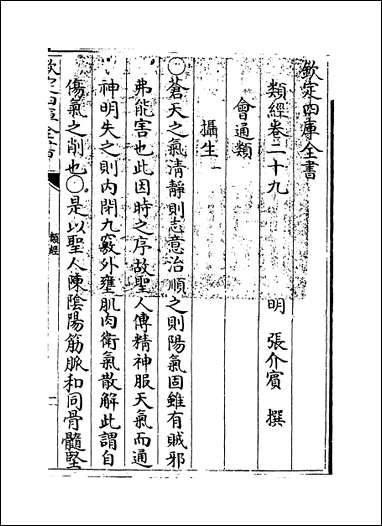 欽定四庫全書
類經卷二十九
明 張介賓 撰
會通類
攝生一
○蒼天之氣清靜則志意治順之則陽氣固雖有賊邪
弗能害也此因時之序故聖人傳精神服天氣而通
神明失之則内閉九竅外壅肌肉衛氣散解此謂自
傷氣之削也○是以聖人陳陰陽筋脈和同骨髓堅
欽定四庫全書
類經